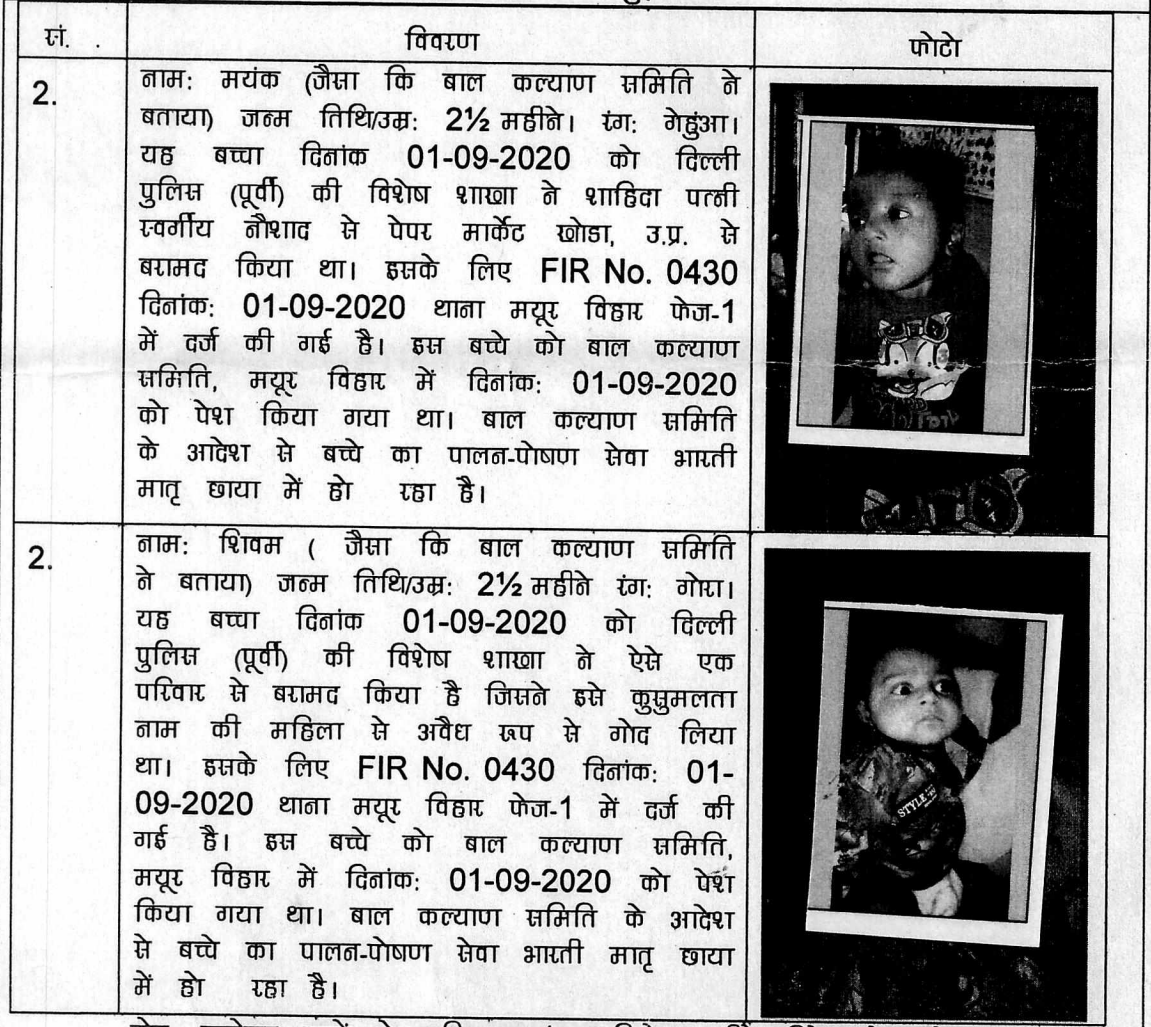 सं. विवरण फोटो
2. नाम: मयंक (जैसा कि बाल कल्याण समिति ने
बताया) जन्म तिथि/उम्र: 2½ महीने। रंग: गेहुंआ।
यह बच्चा दिनांक 01-09-2020 को दिल्ली
पुलिस (पूर्वी) की विशेष शाखा ने शाहिदा पत्नी
स्वर्गीय नौशाद से पेपर मार्केट खोडा, उ.प्र. से
बरामद किया था। इसके लिए FIR No. 0430
दिनांक: 01-09-2020 थाना मयूर विहार फेज-1
में दर्ज की गई है। इस बच्चे को बाल कल्याण
समिति, मयूर विहार में दिनांक: 01-09-2020
को पेश किया गया था। बाल कल्याण समिति
के आदेश से बच्चे का पालन-पोषण सेवा भारती
मातृ छाया में हो रहा है।
2. नाम: शिवम ( जैसा कि बाल कल्याण समिति
ने बताया) जन्म तिथि/उम्र: 2½ महीने रंग: गोरा।
यह बच्चा दिनांक 01-09-2020 को दिल्ली
पुलिस (पूर्वी) की विशेष शाखा ने ऐसे एक
परिवार से बरामद किया है जिसने इसे कुसुमलता
नाम की महिला से अवैध रूप से गोद लिया
था। इसके लिए FIR No. 0430 दिनांक: 01-
09-2020 थाना मयूर विहार फेज-1 में दर्ज की
गई है। इस बच्चे को बाल कल्याण समिति,
मयूर विहार में दिनांक: 01-09-2020 को पेश
किया गया था। बाल कल्याण समिति के आदेश
से बच्चे का पालन-पोषण सेवा भारती मातृ छाया
में हो रहा है।
STYLE